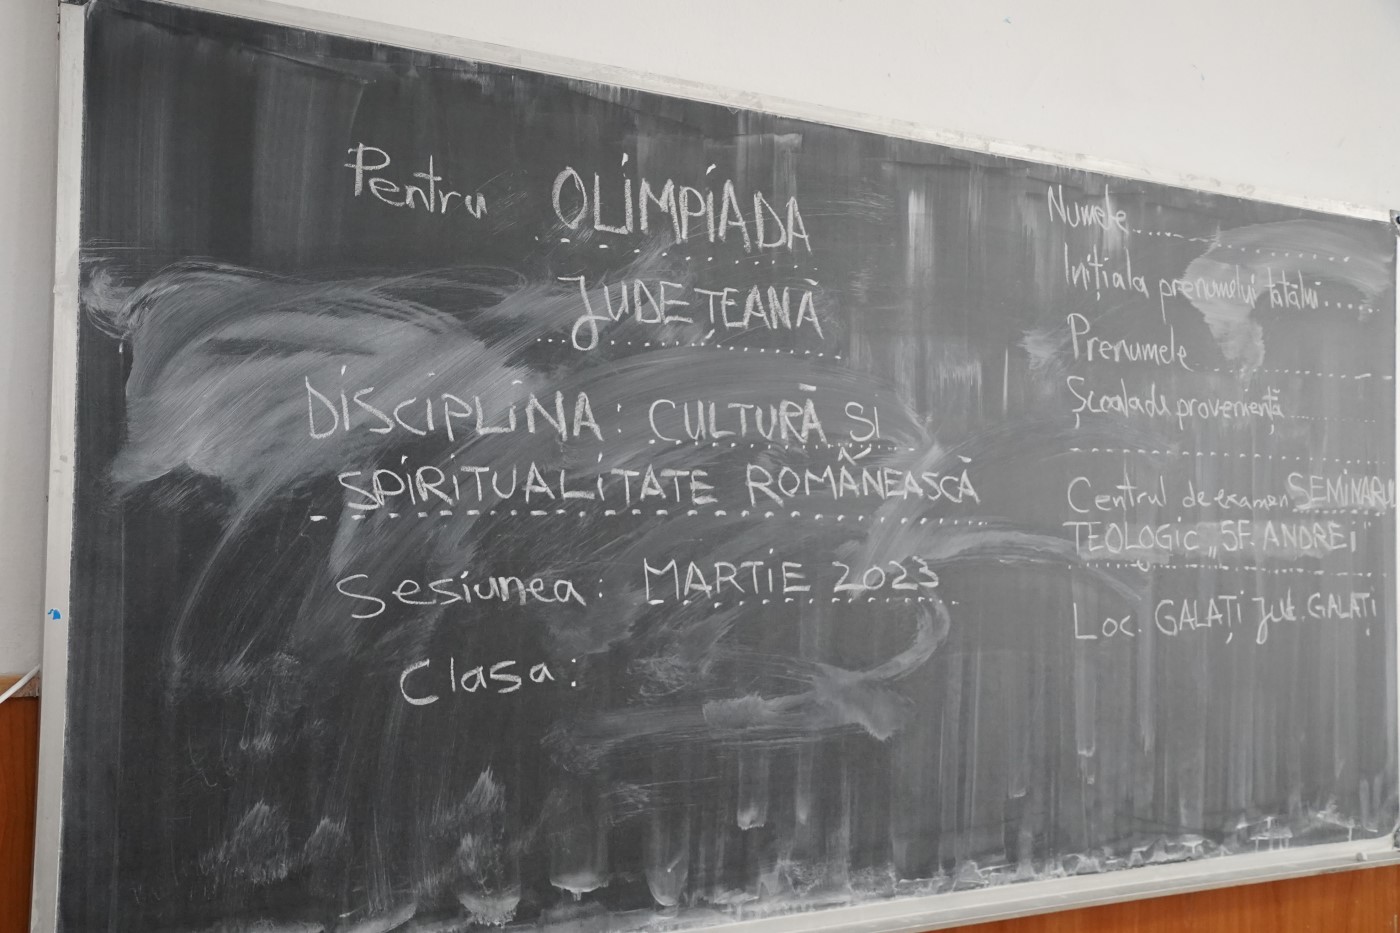 Pentru OLIMPIADA
JUDEȚEANĂ
DISCIPLINA: CULTURĂ ȘI
SPIRITUALITATE ROMÂNEASCĂ
Sesiunea: MARTIE 2023
Clasa:
Numele..........
Inițiala prenumelui tatălui....
Prenumele..........
Școala de proveniență..........
Centrul de examen SEMINARUL
TEOLOGIC „SF. ANDREI
Loc. GALAȚI Jud. GALAȚI